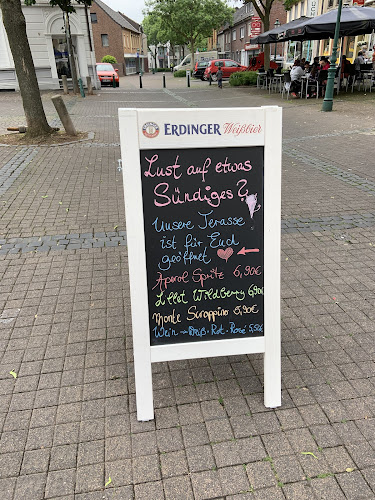 ERDINGER Weißbier
Lust auf etwas
Sündiges?
Unsere Terasse
ist für Euch
geöffnet
Aperol Spritz 6,90€
Lillet Wildberry 6,90€
Monte Sroppino 5,90€
Wein → Weiß · Rot · Rosé 5,50€